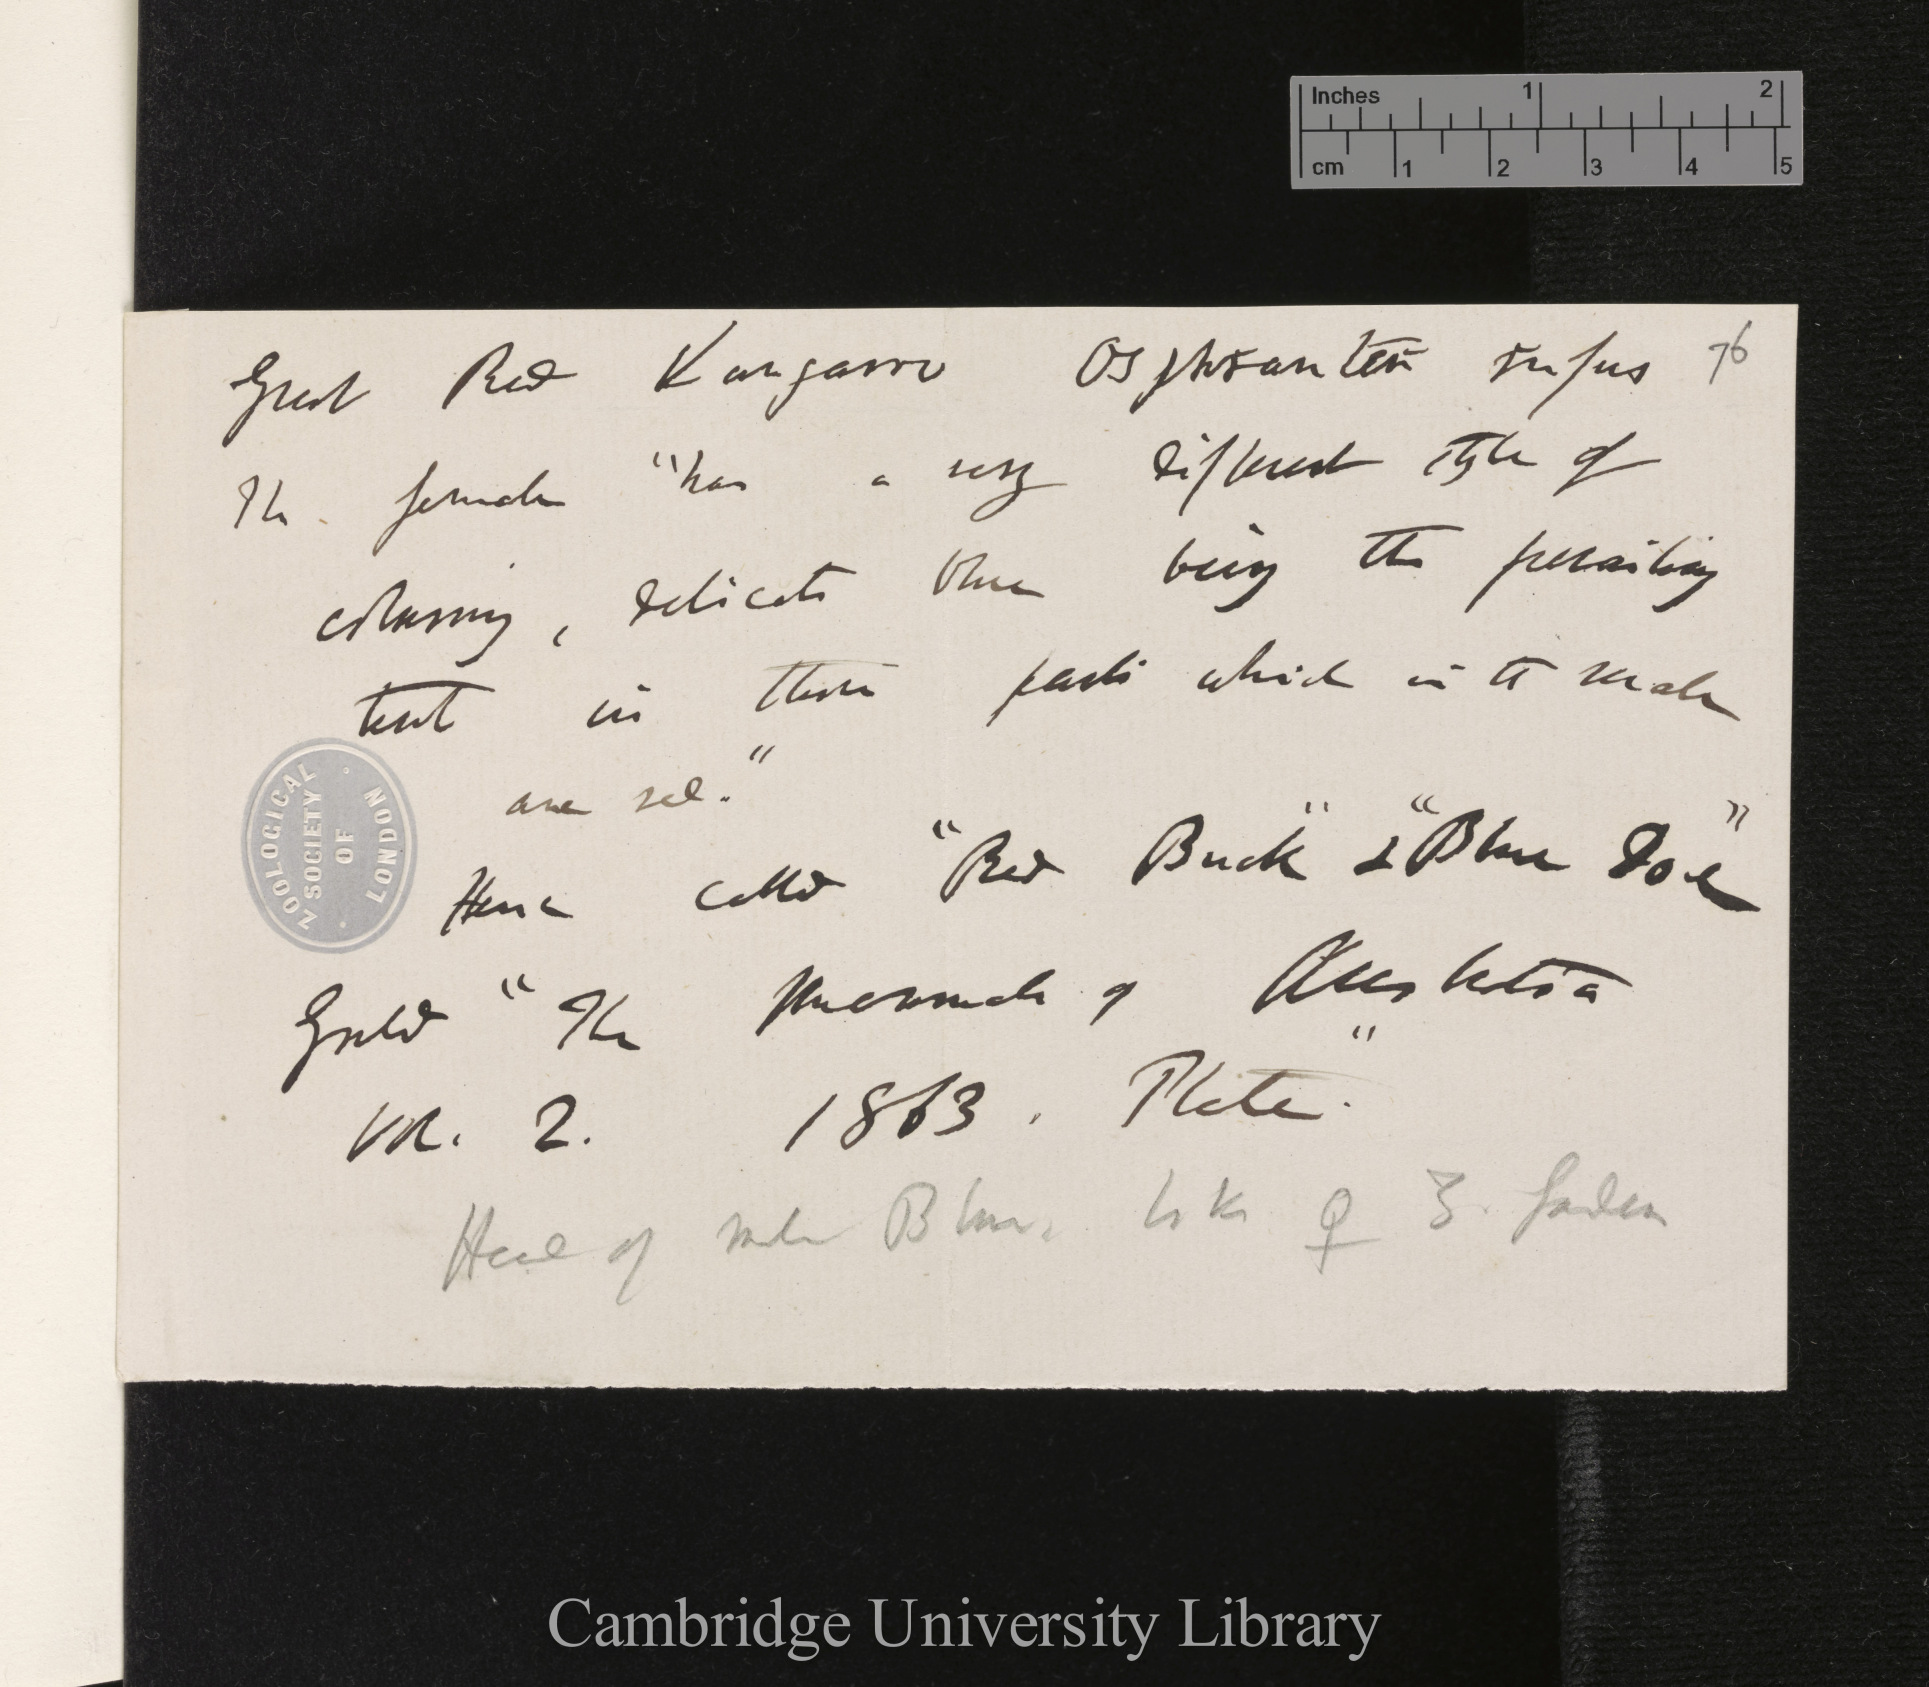 Inches 1 2
cm 1 2 3 4 5
Great Red Kangaroo Osphranter rufus 76
The female "has a very different style of
colouring, delicate blue being the prevailing
tint in those parts which in the male
are red."
Hence called "Red Buck" & "Blue Doe"
Gould "The Mammals of Australia"
vol. 2. 1863. Plate.
Head of male Blue, like ♀ Z. Garden
ZOOLOGICAL
SOCIETY
OF
LONDON
Cambridge University Library